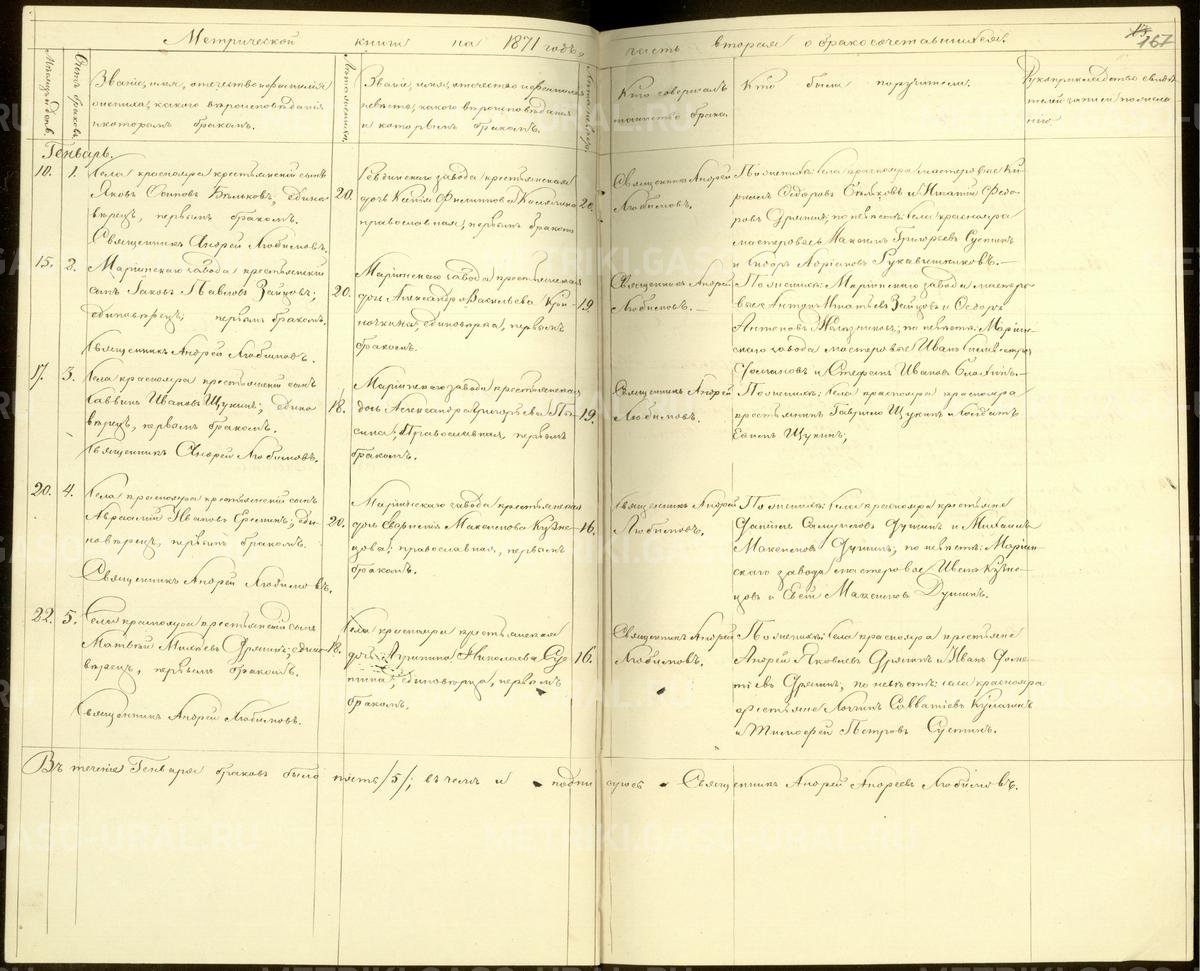 Метрической книги на 1871 годъ, часть вторая о бракосочетавшихся.
167
Мѣсяцъ и день.
Счетъ браковъ.
Званіе, имя, отчество и фамилія
жениха, какого вѣроисповѣданія
и которымъ бракомъ.
Лѣта жениха.
Званіе, имя, отчество и фамилія
невѣсты, какого вѣроисповѣданія
и которымъ бракомъ.
Лѣта невѣсты.
Кто совершалъ
таинство брака.
Кто были поручители.
Рукоприкладство свидѣ-
телей записи по жела
нію
Генварь.
10. 1.
Села краснояра крестьянскій сынъ
Яковъ Осиповъ Бѣлковъ, едино
вѣрецъ, первымъ бракомъ.
Священникъ Андрей Любимовъ.
20.
Ревдинскаго завода крестьянская
дочь Ксенія Филиппова
православная, первымъ бракомъ
20.
Священникъ Андрей
Любимовъ.
По женихѣ: Села краснояра мастеровые Ки
рилъ Ѳедоровъ и Игнатій Ѳедо-
ровъ по невѣстѣ: Села краснояра
мастеровые Максимъ Григорьевъ
и Сидоръ Адріановъ Рукавишниковъ.
15. 2.
Маріинскаго завода крестьянскій
сынъ Іаковъ Павловъ Зайцовъ,
единовѣрецъ, первымъ бракомъ.
Священникъ Андрей Любимовъ.
20.
Маріинскаго завода крестьянская
дочь Александра Васильева Кри-
ночкина, единовѣрка, первымъ
бракомъ.
19.
Священникъ Андрей
Любимовъ.
По женихѣ: Маріинскаго завода мастеро
вые Антонъ Игнатьевъ Зайцовъ и Ѳедоръ
Антиповъ по невѣстѣ: Маріин-
скаго завода мастеровые Иванъ
и Стефанъ Ивановъ
17. 3.
Села краснояра крестьянскій сынъ
Саввинъ Ивановъ Щукинъ; едино
вѣрецъ, первымъ бракомъ.
Священникъ Андрей Любимовъ.
18.
Маріинскаго завода крестьянская
дочь Александра Григорьева По-
сина, Православная, первымъ
бракомъ.
19.
Священникъ Андрей
Любимовъ.
По женихѣ: Села краснояра
крестьянинъ Гаврило Щукинъ и солдатъ
Щукинъ;
20. 4.
Села краснояра крестьянскій сынъ
Авраамій Ивановъ еди-
новѣрецъ, первымъ бракомъ.
Священникъ Андрей Любимовъ.
20.
Маріинскаго завода крестьянская
дочь Евдокія Максимова Кузне-
цова; православная, первымъ
бракомъ.
16.
Священникъ Андрей
Любимовъ.
По женихѣ: Села краснояра крестьяне
Даніилъ и Михаилъ
Максимовъ по невѣстѣ: Маріин-
скаго завода мастеровые Иванъ Кузне-
цовъ и Максимовъ
22. 5.
Села краснояра крестьянскій сынъ
Матвѣй едино-
вѣрецъ, первымъ бракомъ.
Священникъ Андрей Любимовъ.
18.
Села краснояра крестьянская
дочь Агрипина Николаева
единовѣрица, первымъ
бракомъ.
16.
Священникъ Андрей
Любимовъ.
По женихѣ: Села краснояра крестьяне
Андрей Яковлевъ и Иванъ
по невѣстѣ: села краснояра
крестьяне Логинъ Савватіевъ
и Тимофей Петровъ
Въ теченіе Генваря браковъ было пять /5/; въ чемъ и подписуюсь Священникъ Андрей Андреевъ Любимовъ.
METRIKI.GASO-URAL.RU